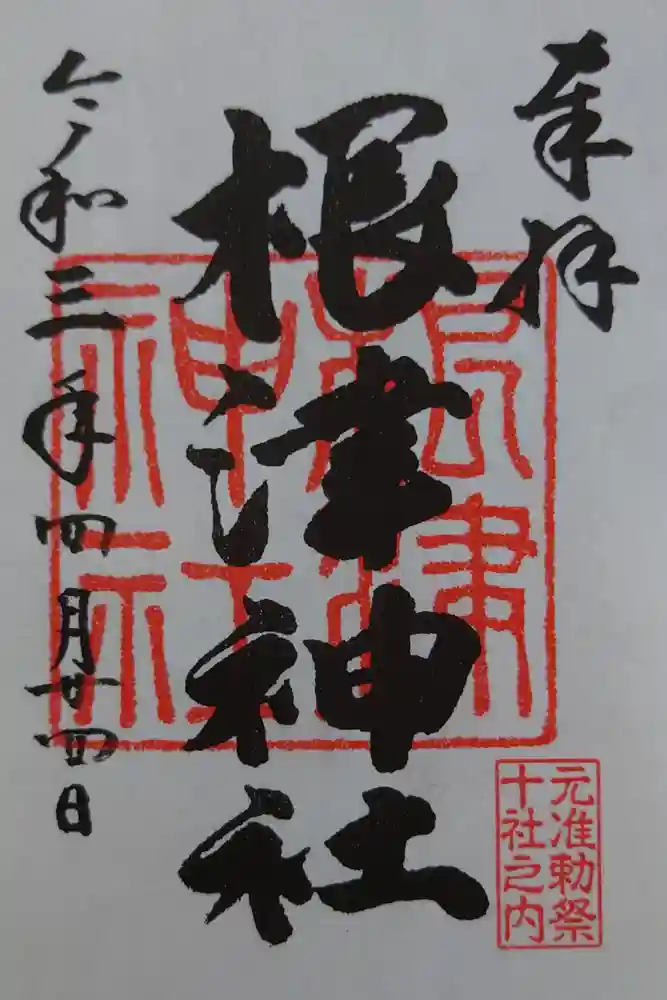 奉拝
根津神社
根津神社
元准勅祭
十社之内
令和三年四月廿四日